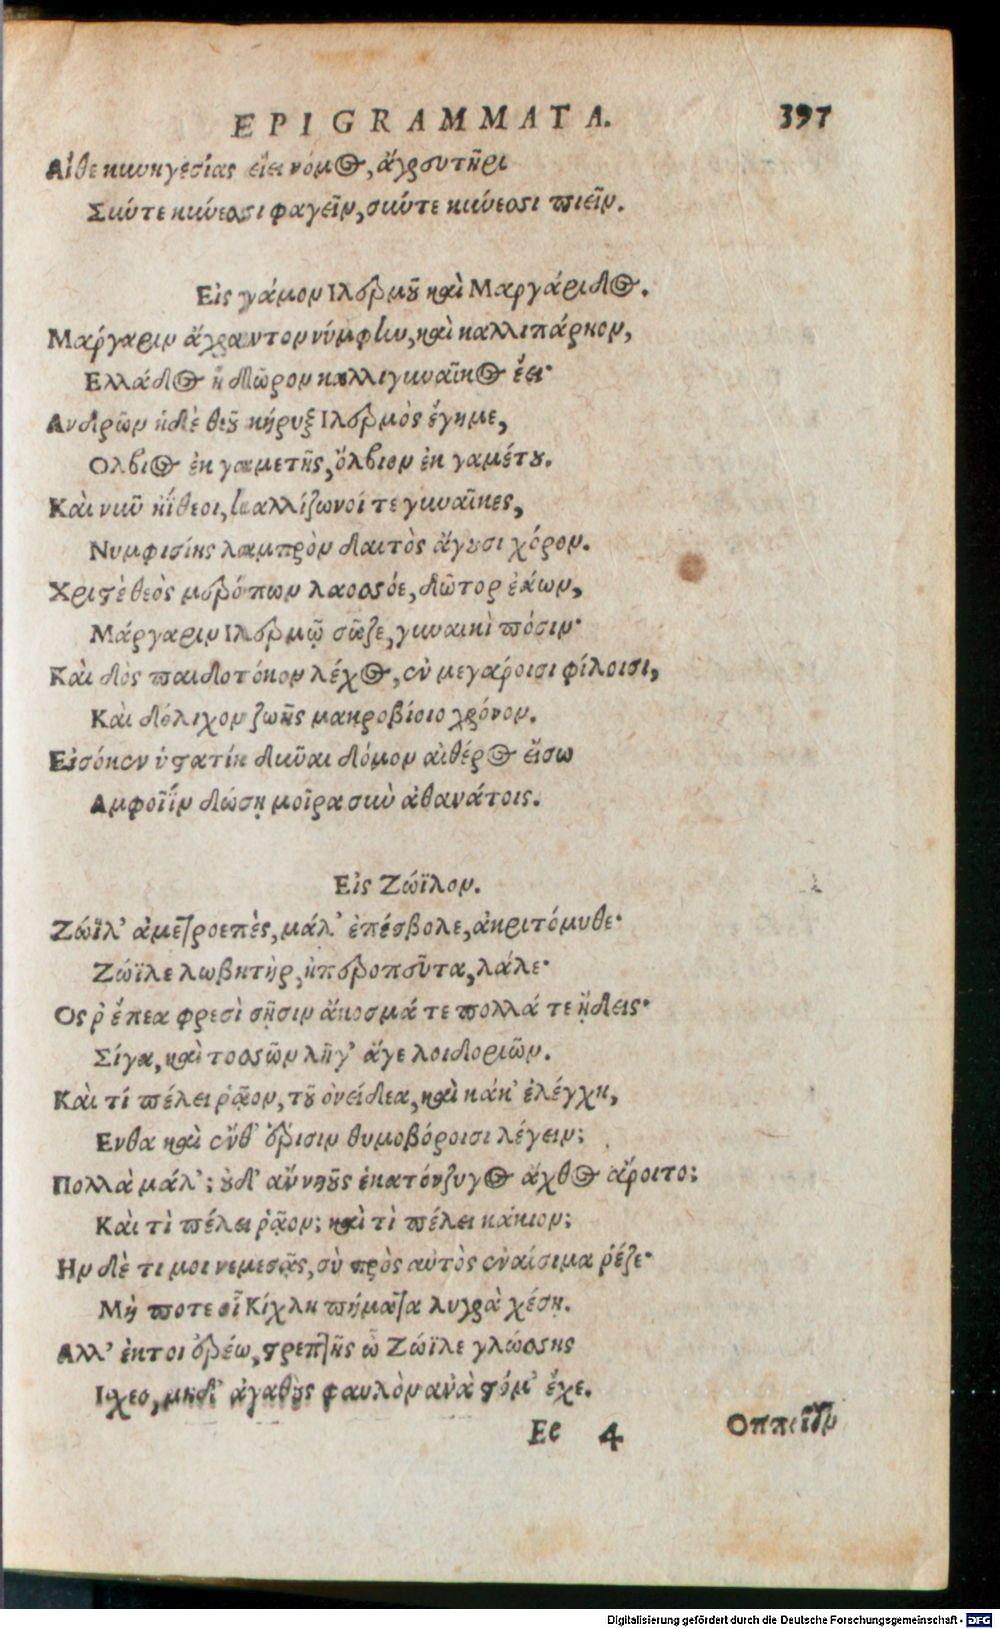 EPIGRAMMATA. 397
Αἴθε κυνηγεσίας εἴει νόμος, ἀγρευτῆρι
Σκύτε κύνεσσι φαγεῖν, σκύτε κύνεσσι πιεῖν.
Εἰς γάμον Ιλερμοῦ καὶ Μαργάριδος.
Μάργαριν ἄχραντον νύμφην, καὶ καλλιπάρῃον,
Ελλάδος ἣ δῶρον καλλιγυναῖκος ἔει·
Ανδρῶν ἠδὲ θεοῦ κήρυξ Ιλερμὸς ἔγημε,
Ολβιος ἐκ γαμετῆς, ὄλβιον ἐκ γαμέτου.
Καὶ νῦν ἠΐθεοι, καλλίζωνοί τε γυναῖκες,
Νυμφιδίης λαμπρὸν δαιτὸς ἄγουσι χόρον.
Χριστὲ θεὸς μερόπων λαοσσόε, δῶτορ ἐάων,
Μάργαριν Ιλερμῷ σῶζε, γυναικὶ πόσιν·
Καὶ δὸς παιδοτόκον λέχος, ἐν μεγάροισι φίλοισι,
Καὶ δόλιχον ζωῆς μακροβίοιο χρόνον.
Εἰσόκεν ὑστατίη δῦναι δόμον αἰθέρος εἴσω
Αμφοῖΐν δώσῃ μοῖρα σὺν ἀθανάτοις.
Εἰς Ζώϊλον.
Ζώϊλ' ἀμετροεπὲς, μάλ' ἐπέσβολε, ἀκριτόμυθε·
Ζώϊλε λωβητὴρ, ἠπεροπεῦτα, λάλε·
Ος ῥ' ἔπεα φρεσὶ σῇσιν ἄκοσμά τε πολλά τε ᾔδεις·
Σίγα, καὶ τοσσῶν λῆγ' ἄγε λοιδοριῶν.
Καὶ τί πέλει ῥᾷον, τοῦ ὀνείδεα, καὶ κάκ' ἐλέγχη,
Ενθα καὶ ἔνθ' ἔρισιν θυμοβόροισι λέγειν;
Πολλὰ μάλ'; οὐδ' ἂν νηῦς ἑκατόνζυγος ἄχθος ἄροιτο;
Καὶ τὶ πέλει ῥᾷον; καὶ τὶ πέλει κάκιον;
Ην δὲ τι μοι νεμεσᾷς, σὺ πρὸς αὐτὸς ἐναίσιμα ῥέζε·
Μή ποτε οἷ Κίχλη πήματα λυγρὰ χέσῃ.
Αλλ' ἐκ τοι ἐρέω, στρεπτῆς ὦ Ζώϊλε γλώσσης
Ισχεο, μηδ' ἀγαθοῖς φαυλὸν ἀνὰ στόμ' ἔχε.
Ee 4 Οππεῖδν
Digitalisierung gefördert durch die Deutsche Forschungsgemeinschaft - DFG